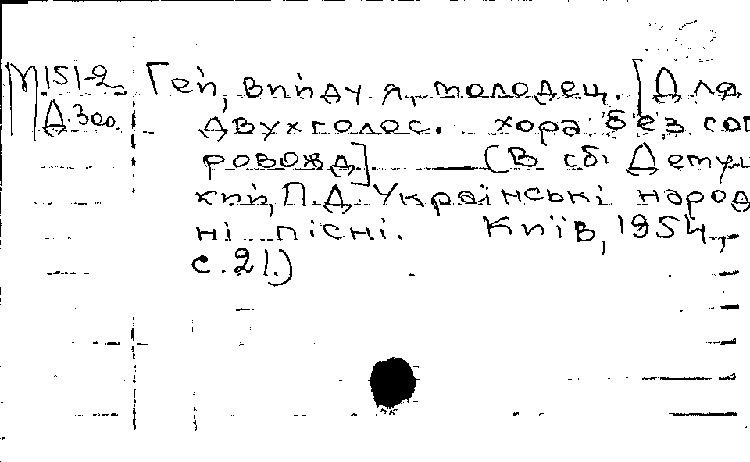 М.151-2 Гей, вийду я, молодец. [Для
Д.300. двухголос. хора без соп
ровожд] — (В сб: Демуц
кий, П.Д. Українські народ
ні пісні. Київ, 1954,
с.21.)